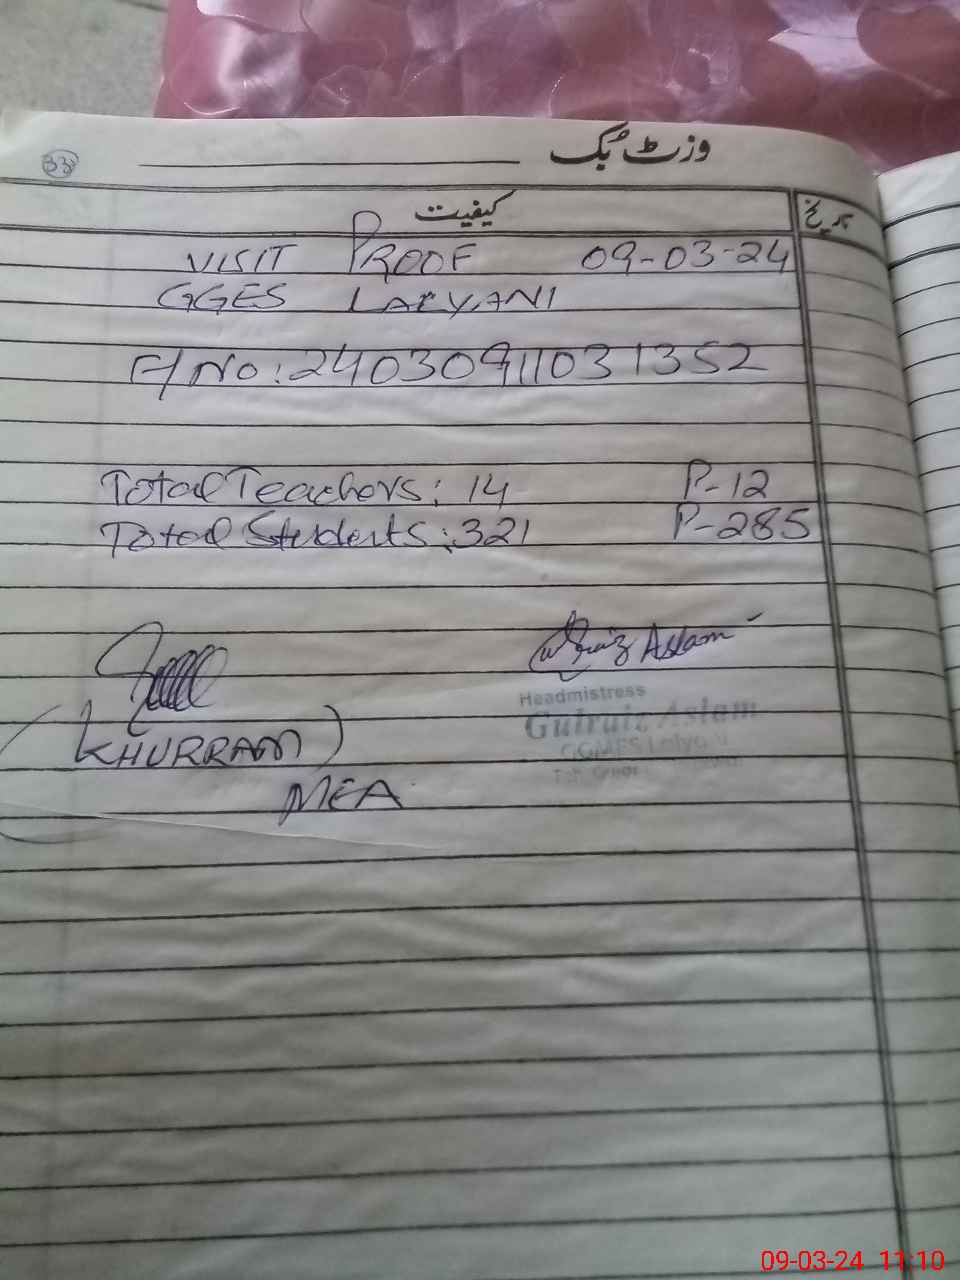 33
وزٹ بُک
کیفیت تاریخ
VISIT PROOF 09-03-24
GGES LALYANI
F/NO: 24030911031352
Total Teachers: 14 P-12
Total Students: 321 P-285
Gulraiz Aslam
Headmistress
Gulraiz Aslam
(KHURRAM)
MEA
09-03-24 11:10